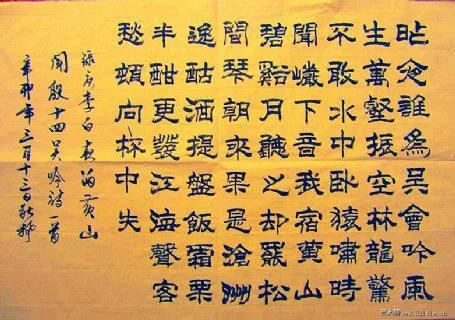 昨夜誰為吳會吟風
生萬壑振空林龍驚
不敢水中臥猿嘯時
聞巖下音我宿黃山
碧谿月聽之却罷松
間琴朝來果是滄洲
逸酤酒提盤飯霜栗
半酣更發江海聲客
愁頓向杯中失
錄唐李白夜泊黃山
聞殷十四吳吟詩一首
辛卯年三月十三日